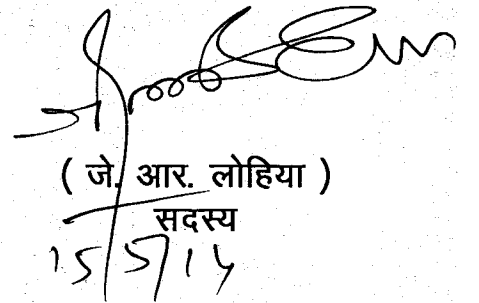 ( जे. आर. लोहिया )
सदस्य
15/5/14